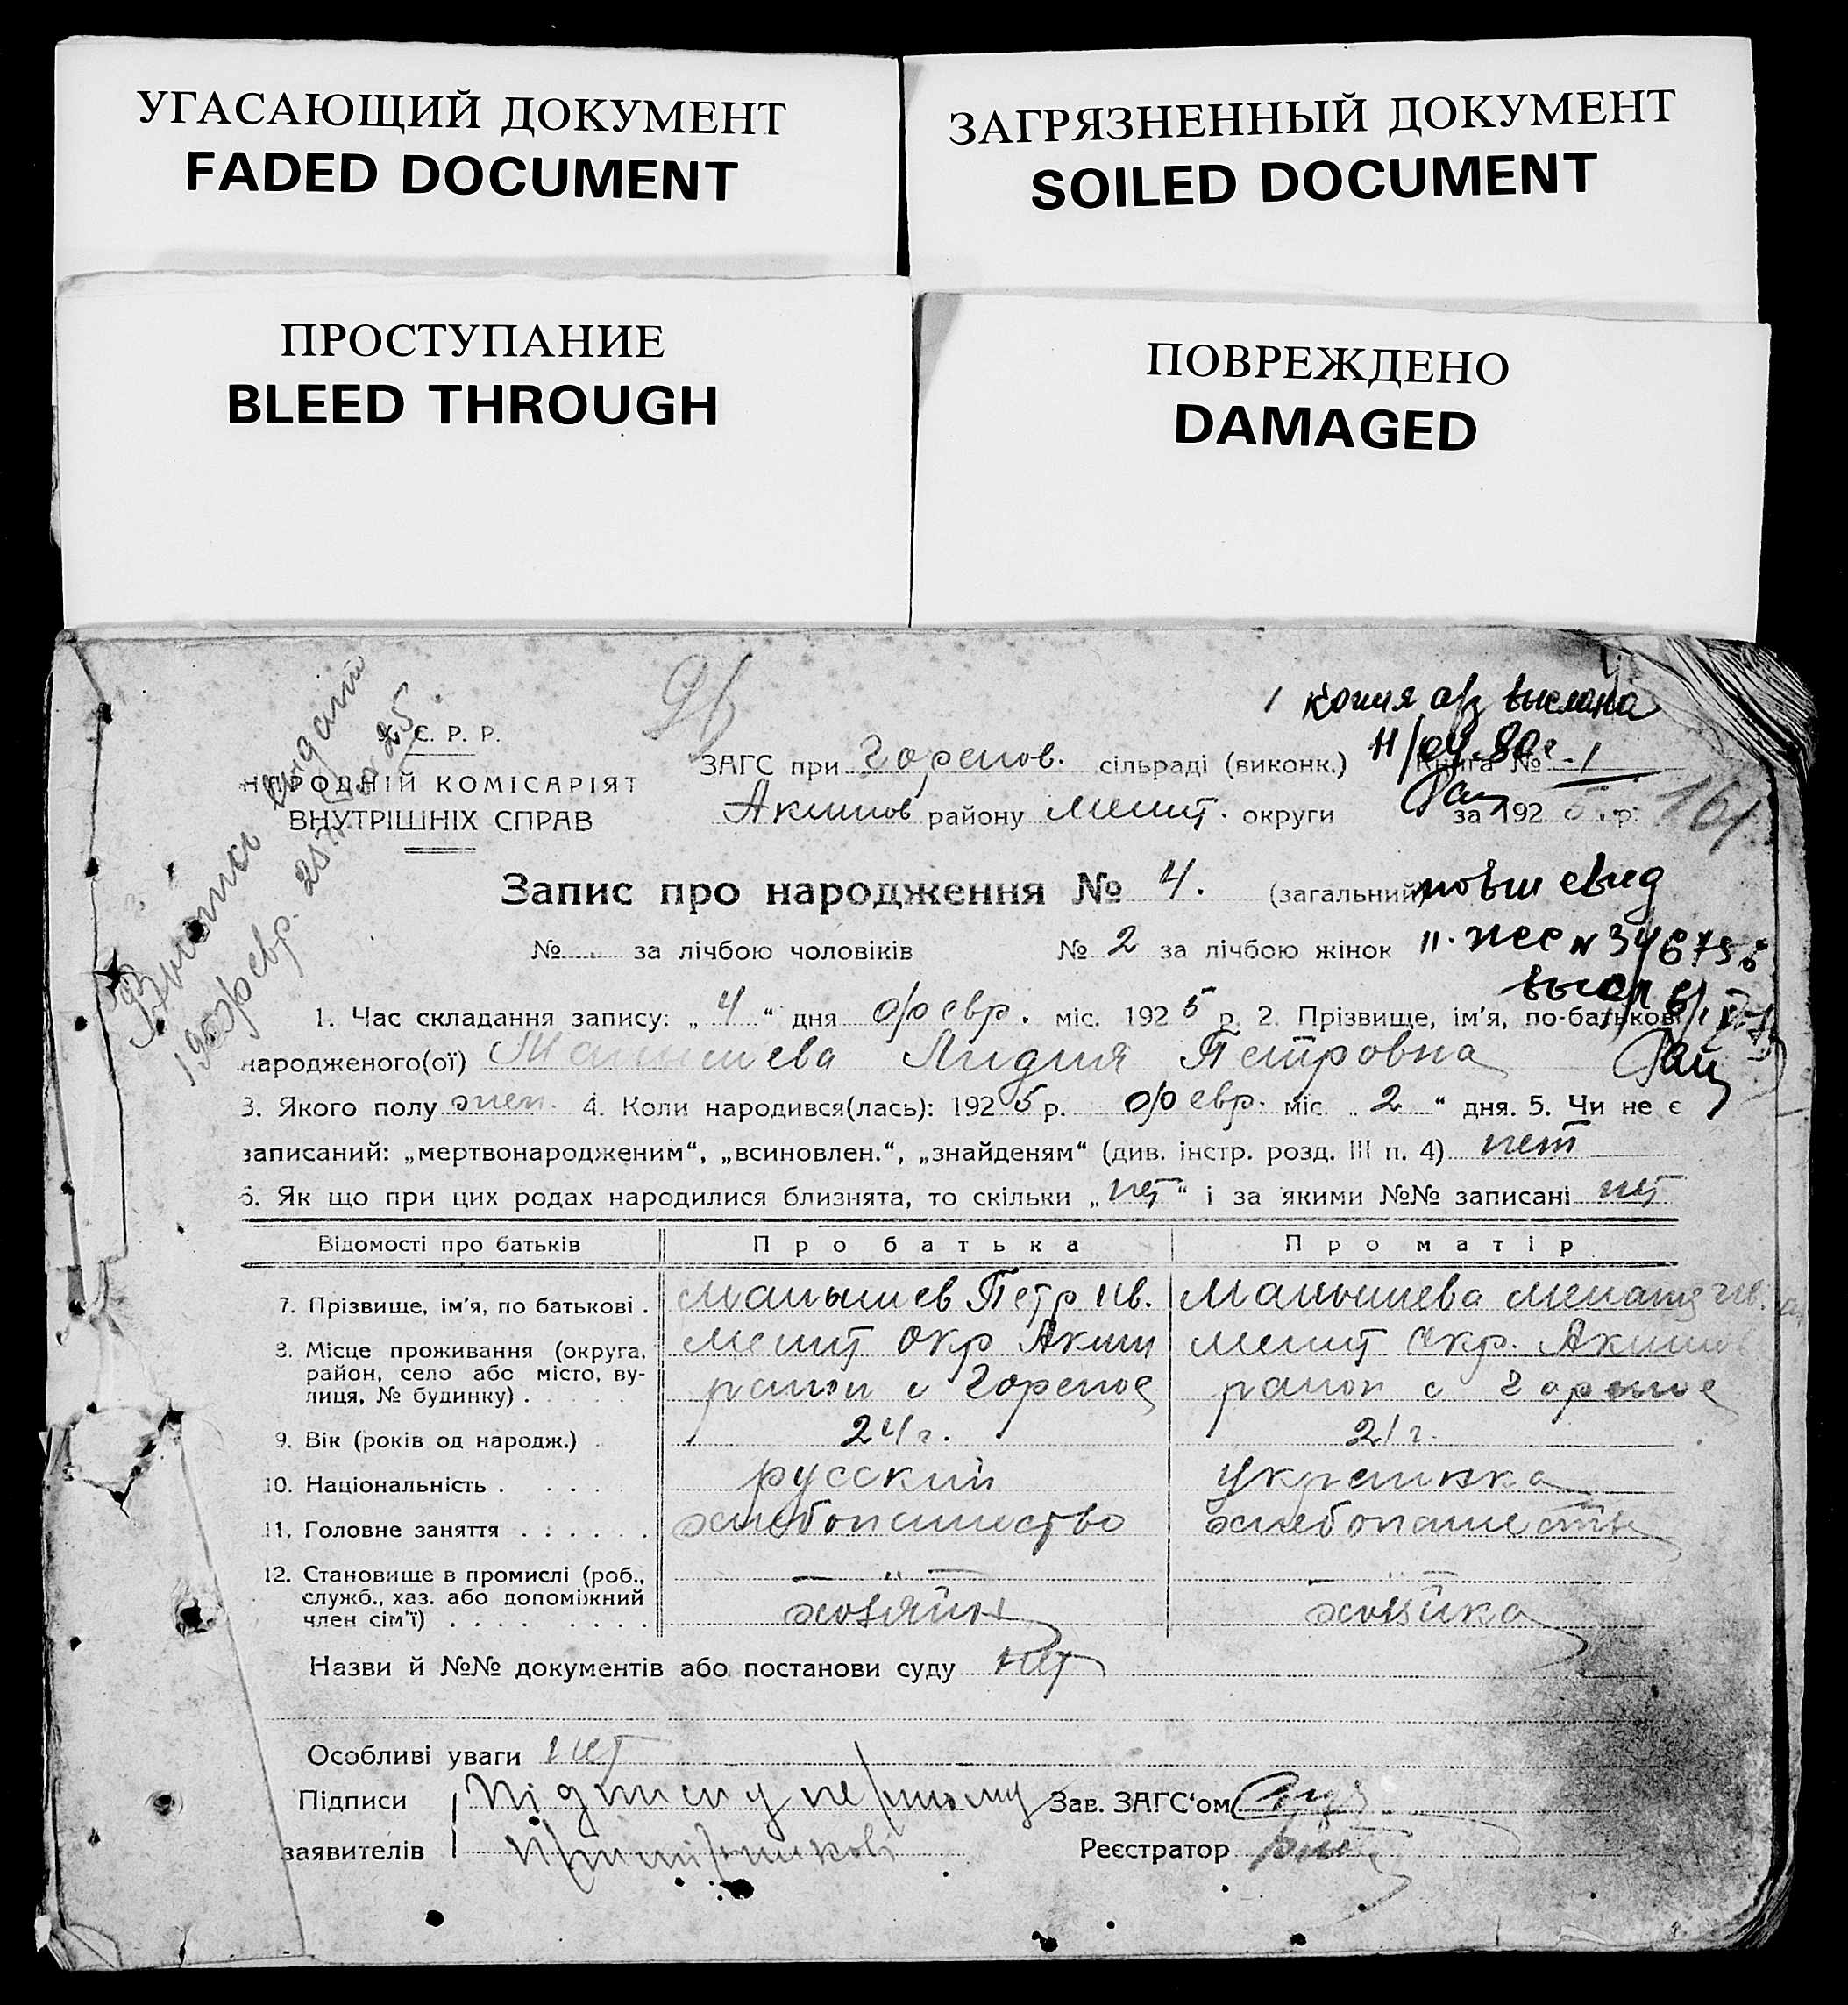 УГАСАЮЩИЙ ДОКУМЕНТ
FADED DOCUMENT
ЗАГРЯЗНЕННЫЙ ДОКУМЕНТ
SOILED DOCUMENT
ПРОСТУПАНИЕ
BLEED THROUGH
ПОВРЕЖДЕНО
DAMAGED
копия а/з выслана
11/04-80г
У. С. Р. Р.
НАРОДНІЙ КОМІСАРІЯТ
ВНУТРІШНІХ СПРАВ
Выпись выдана
ЗАГС при Горепов. сільраді (виконк.) Книга № 1
Акимов району Мелит. округи за 192 5 р.
161
Запис про народження № 4. (загальний)
повт свид
№ за лічбою чоловіків № 2 за лічбою жінок
1. Час складання запису: „4“ дня февр. міс. 1925 р. 2. Прізвище, ім'я, по-батькові
народженого(ої) Малышева Лидия Петровна
3. Якого полу жен. 4. Коли народився(лась): 1925 р. февр. міс. „2“ дня. 5. Чи не є
записаний: „мертвонародженим“, „всиновлен.“, „знайденям“ (див. інстр. розд. III п. 4) нет
6. Як що при цих родах народилися близнята, то скільки „нет“ і за якими №№ записані нет
Відомості про батьків Про батька Про матір
7. Прізвище, ім'я, по батькові . Малышев Петр Ив. Малышева
8. Місце проживання (округа, район, село або місто, вулиця, № будинку) . Мелит окр Аким район с Горепое Мелит окр. Аким район с Горепое
9. Вік (років од народж.) . 24 г. 21 г.
10. Національність . . . . . русский украинка
11. Головне заняття . . . . . . хлебопашество хлебопашество
12. Становище в промислі (роб., служб., хаз. або допоміжний член сім'ї) . . . . . . . . хозяйн хозяйка
Назви й №№ документів або постанови суду нет
Особливі уваги нет
Підписи Підписи у першому Зав. ЗАГС'ом
заявителів примірникові Реєстратор